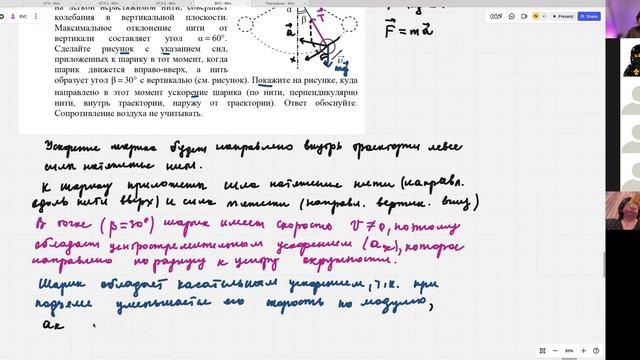 на легкой нерастяжимой нити, совершает
колебания в вертикальной плоскости.
Максимальное отклонение нити от
вертикали составляет угол α=60°.
Сделайте рисунок с указанием сил,
приложенных к шарику в тот момент, когда
шарик движется вправо-вверх, а нить
образует угол β=30° с вертикалью (см. рисунок). Покажите на рисунке, куда
направлено в этот момент ускорение шарика (по нити, перпендикулярно
нити, внутрь траектории, наружу от траектории). Ответ обоснуйте.
Сопротивление воздуха не учитывать.
α
β
T
a
x
mg
F = ma
Ускорение шарика будет направлено внутрь траектории левее
силы натяжения нити.
К шарику приложены сила натяжения нити (направл.
вдоль нити вверх) и сила тяжести (направл. вертик. вниз)
В точке (β=30°) шарик имеет скорость V≠0, поэтому
обладает центростремительным ускорением (aх), которое
направлено по радиусу к центру окружности.
Шарик обладает касательным ускорением, т.к. при
подъеме уменьшается его скорость по модулю,
aк
89%